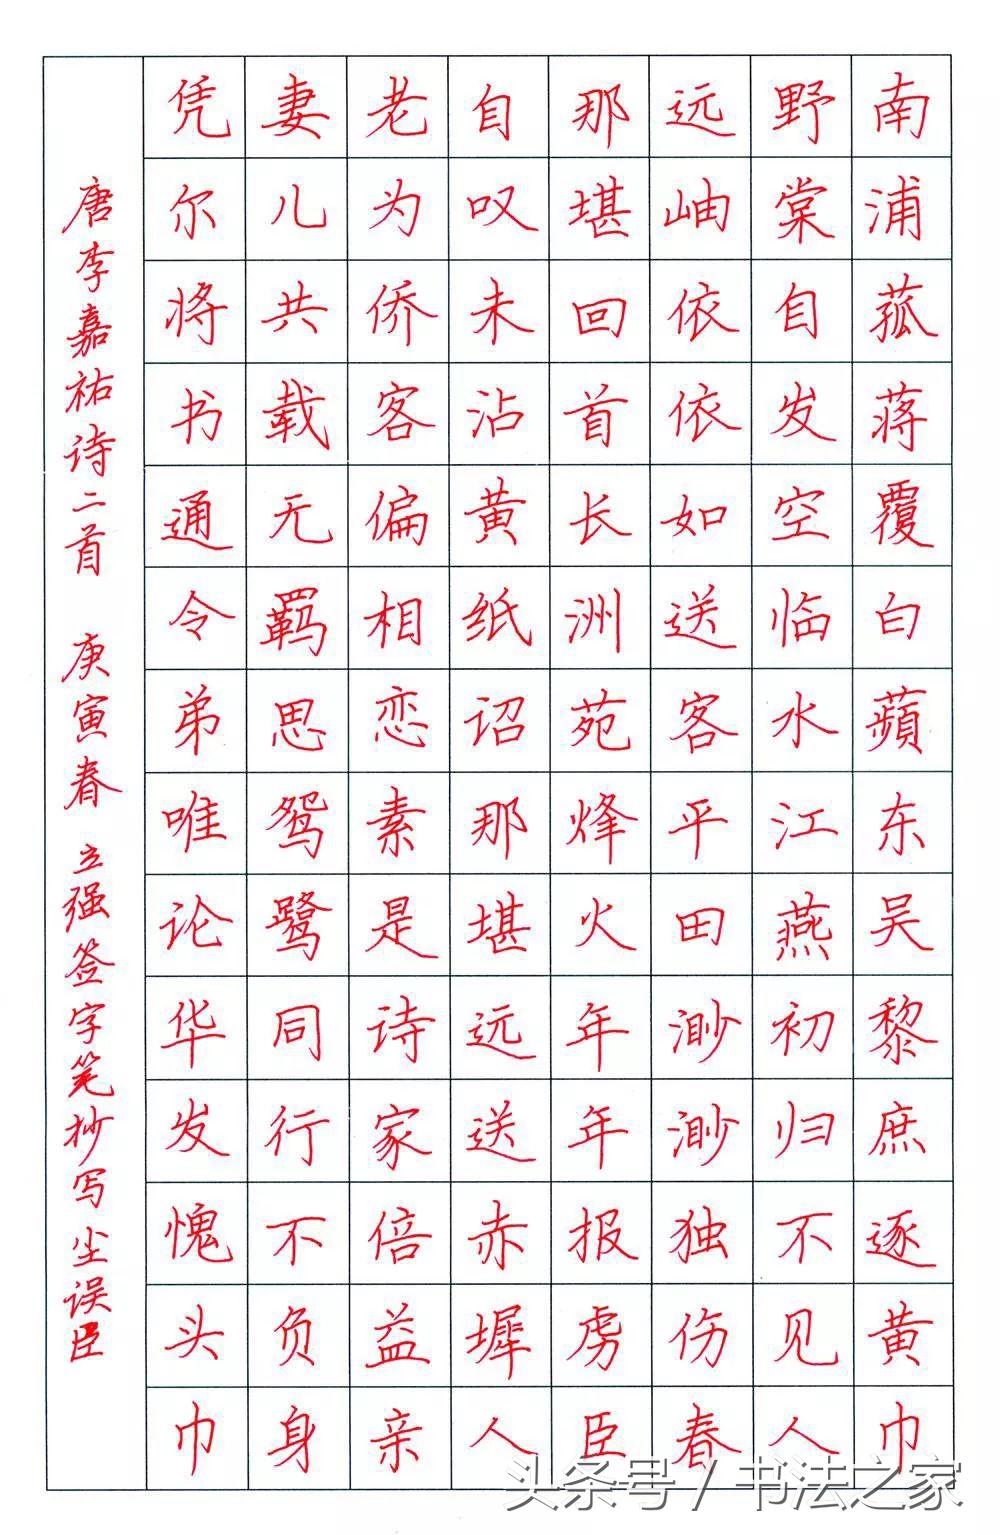 南浦菰蒋覆白蘋东吴黎庶逐黄巾
野棠自发空临水江燕初归不见人
远岫依依如送客平田渺渺独伤春
那堪回首长洲苑烽火年年报虏臣
自叹未沾黄纸诏那堪远送赤墀人
老为侨客偏相恋素是诗家倍益亲
妻儿共载无羁思鸳鹭同行不负身
凭尔将书通令弟唯论华发愧头巾
唐李嘉祐诗二首 庚寅春 立强签字笔抄写尘误臣
头条号 / 书法之家